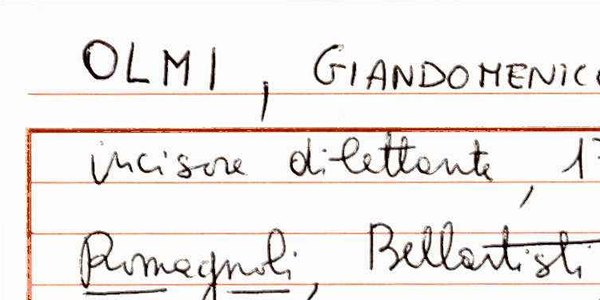 OLMI, GIANDOMENICO
incisore dilettante, 17
Romagnoli, Bellartisti